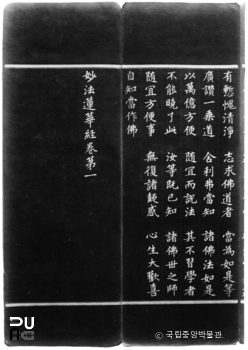 有慙愧清淨 志求佛道者 當為如是等
廣讚一乘道 舍利弗當知 諸佛法如是
以萬億方便 隨宜而說法 其不習學者
不能曉了此 汝等既已知 諸佛世之師
隨宜方便事 無復諸疑惑 心生大歡喜
自知當作佛
妙法蓮華經卷第一
© 국립중앙박물관